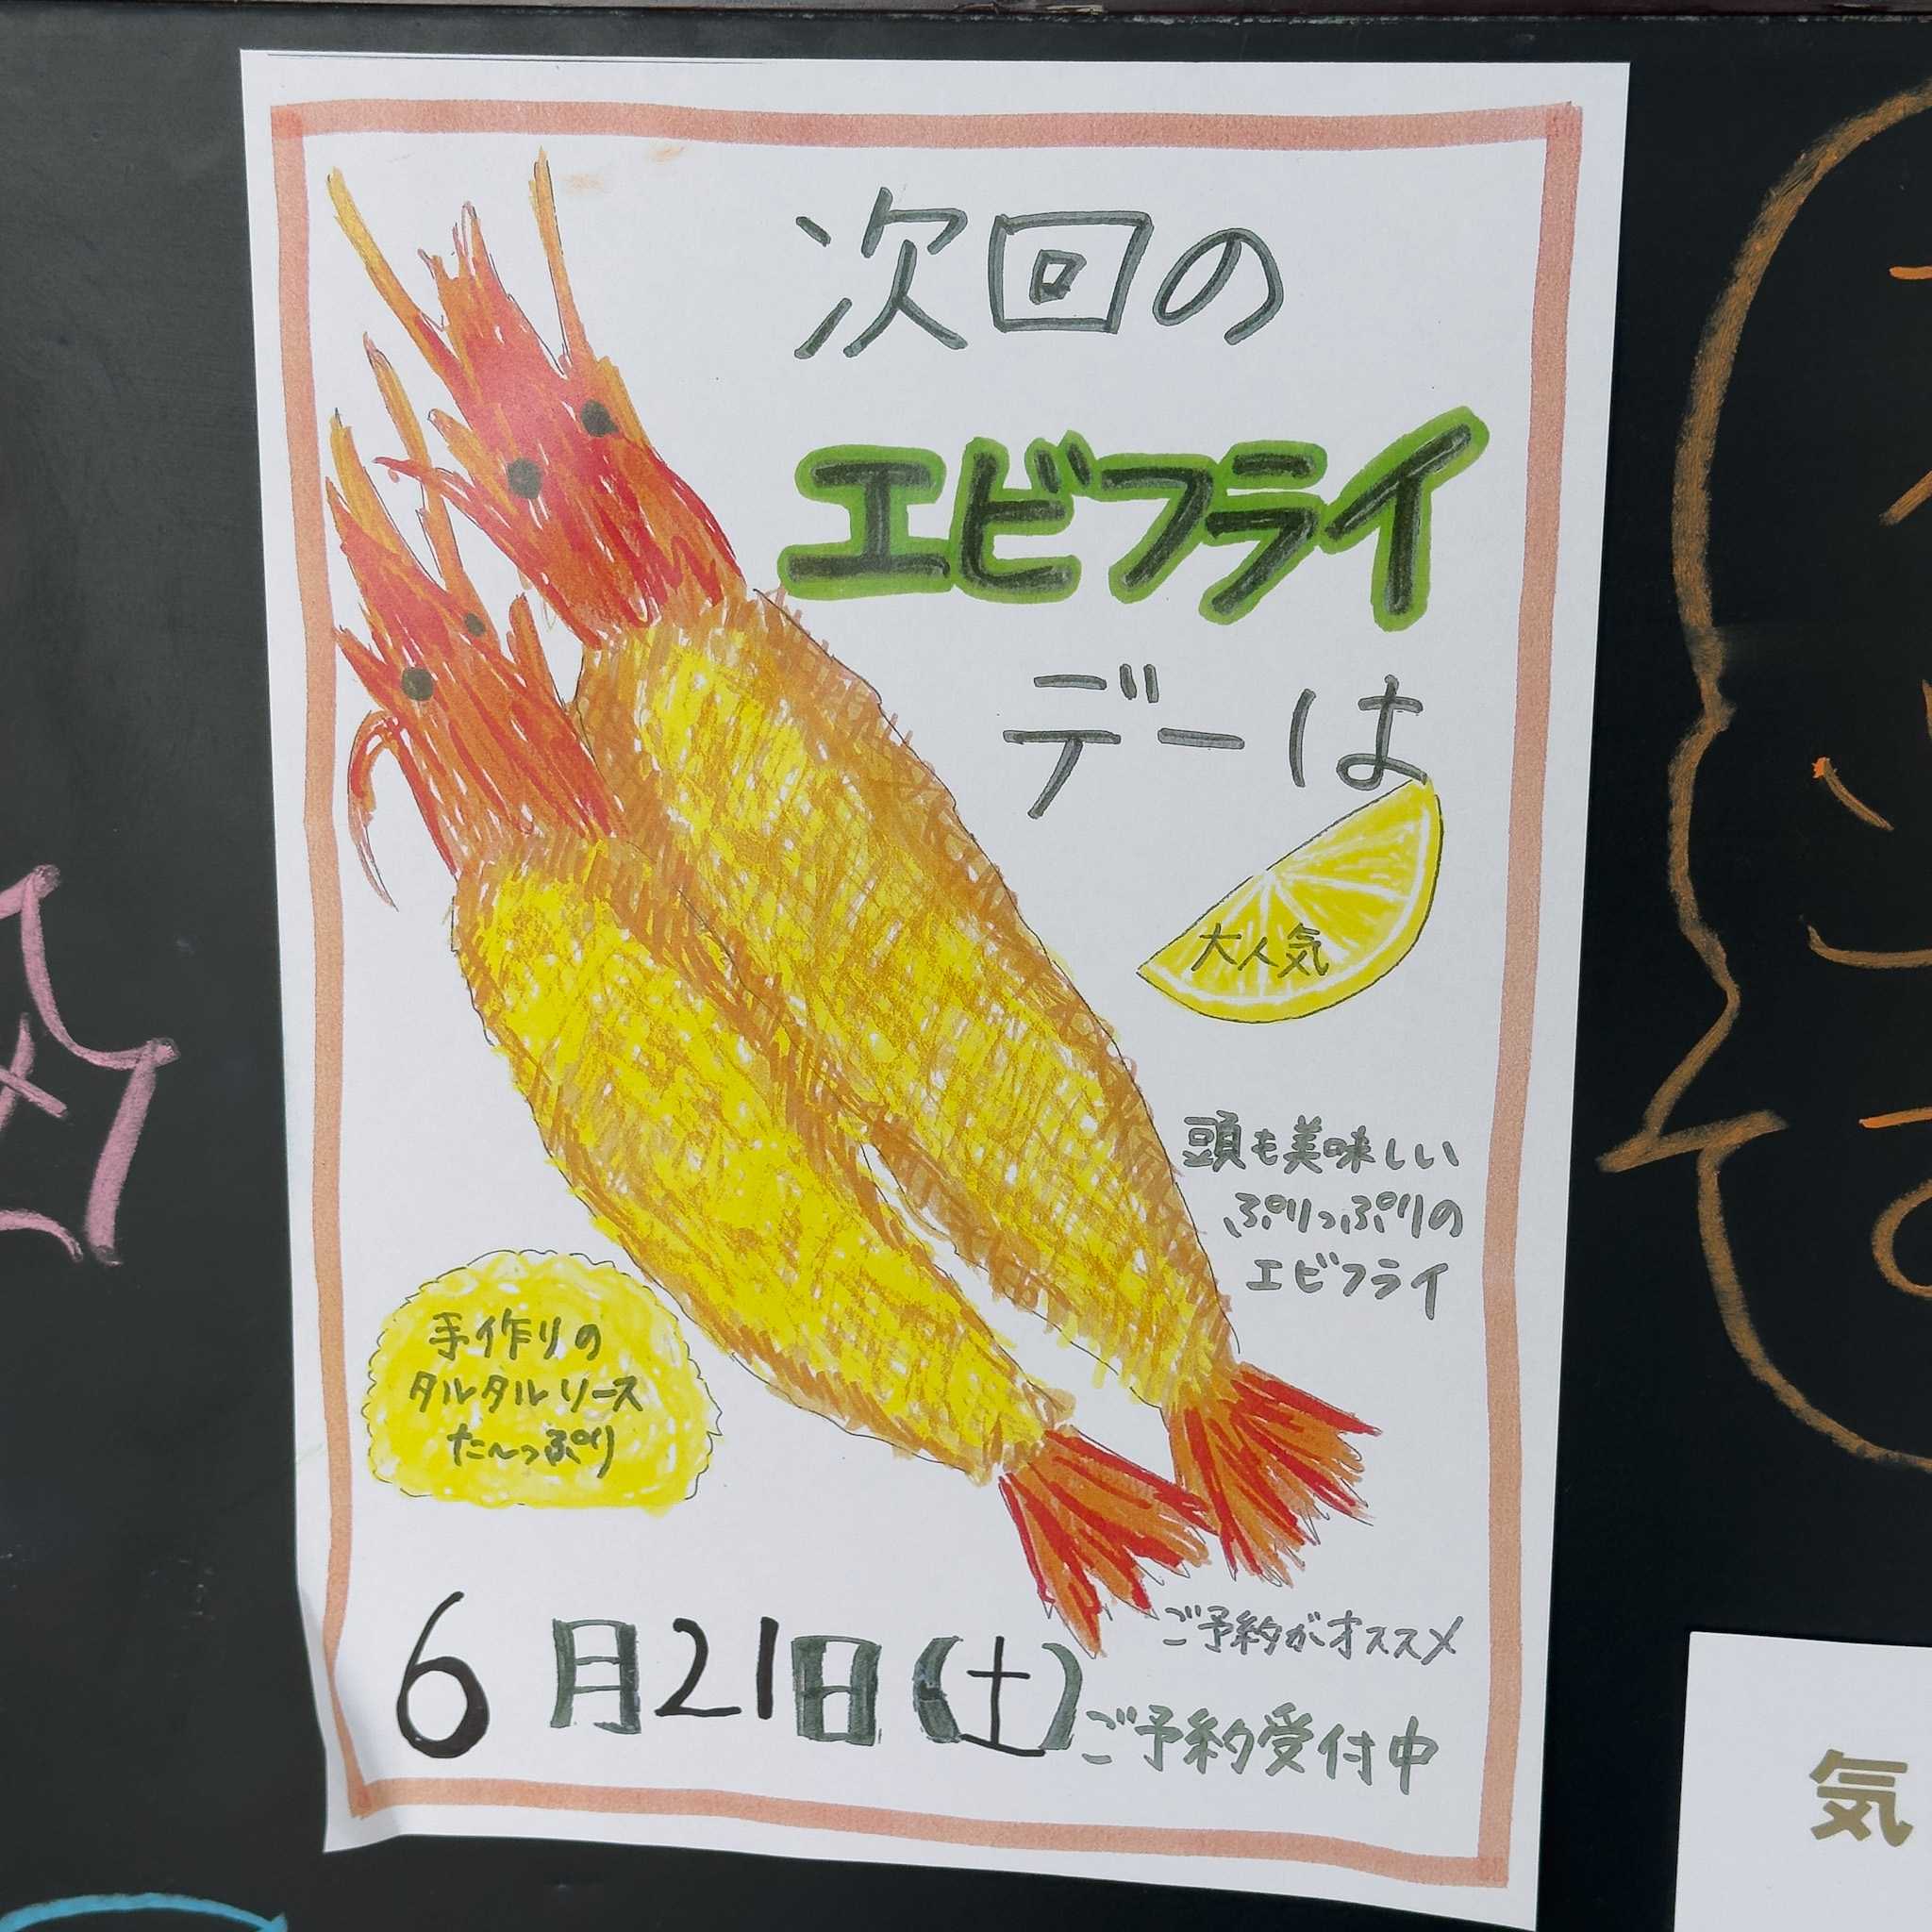 次回の
エビフライ
デーは
大人気
頭も美味しい
ぷりっぷりの
エビフライ
手作りの
タルタルソース
た〜っぷり
ご予約がオススメ
6月21日(土)
ご予約受付中
気